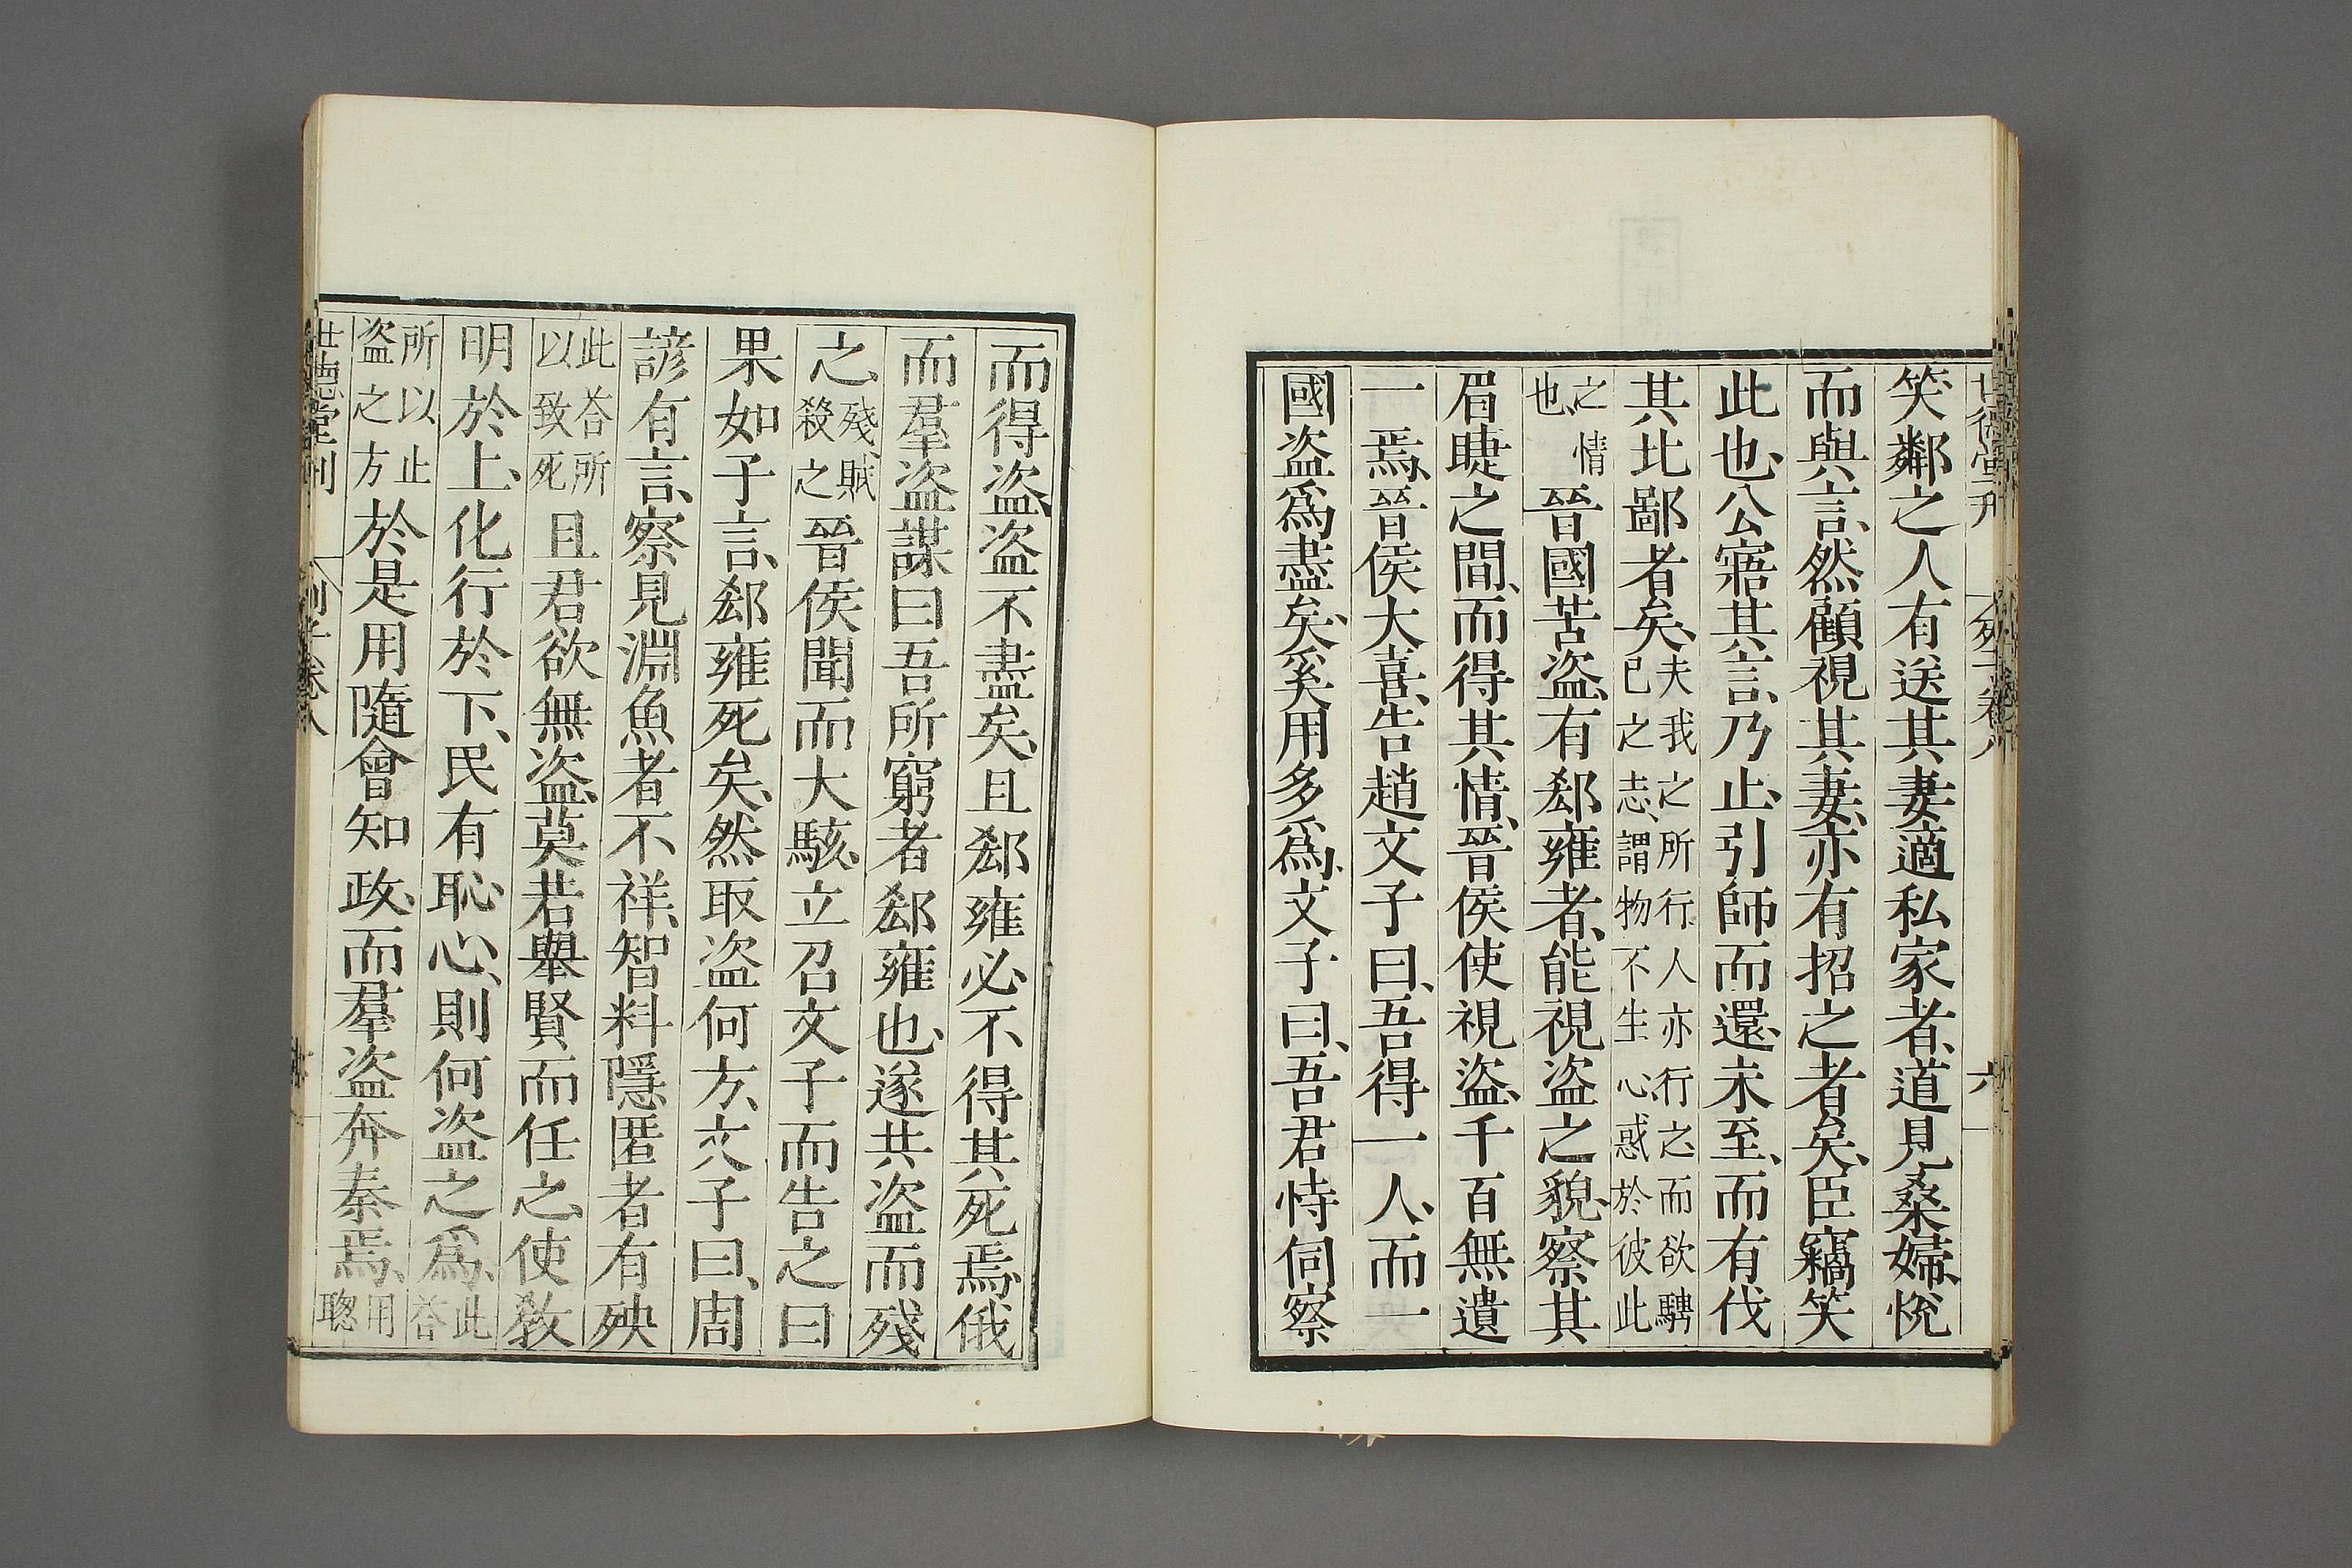 世德堂刊　列子卷八　六
笑鄰之人有送其妻適私家者、道見桑婦、悅
而與言、然顧視其妻、亦有招之者矣、臣竊笑
此也、公寤其言、乃止、引師而還、未至、而有伐
其北鄙者矣、夫我之所行、人亦行之、而欲騁
已之志、謂物不生心惑於彼此
之情
也、晉國苦盜、有郄雍者、能視盜之貌、察其
眉睫之閒、而得其情、晉侯使視盜、千百無遺
一焉、晉侯大喜、告趙文子曰、吾得一人、而一
國盜爲盡矣、奚用多爲、文子曰、吾君恃伺察
而得盜、盜不盡矣、且郄雍必不得其死焉、俄
而羣盜謀曰吾所窮者郄雍也、遂共盜而殘
之、殘、賊
殺之晉侯聞而大駭、立召文子而告之曰
果如子言、郄雍死矣、然取盜何方、文子曰、周
諺有言、察見淵魚者不祥、智料隱匿者有殃
此荅所
以致死且君欲無盜、莫若舉賢而任之、使敎
明於上、化行於下、民有恥心、則何盜之爲、此
荅
所以止
盜之方於是用隨會知政、而羣盜奔秦焉、用
聰
世德堂刊　列子卷八